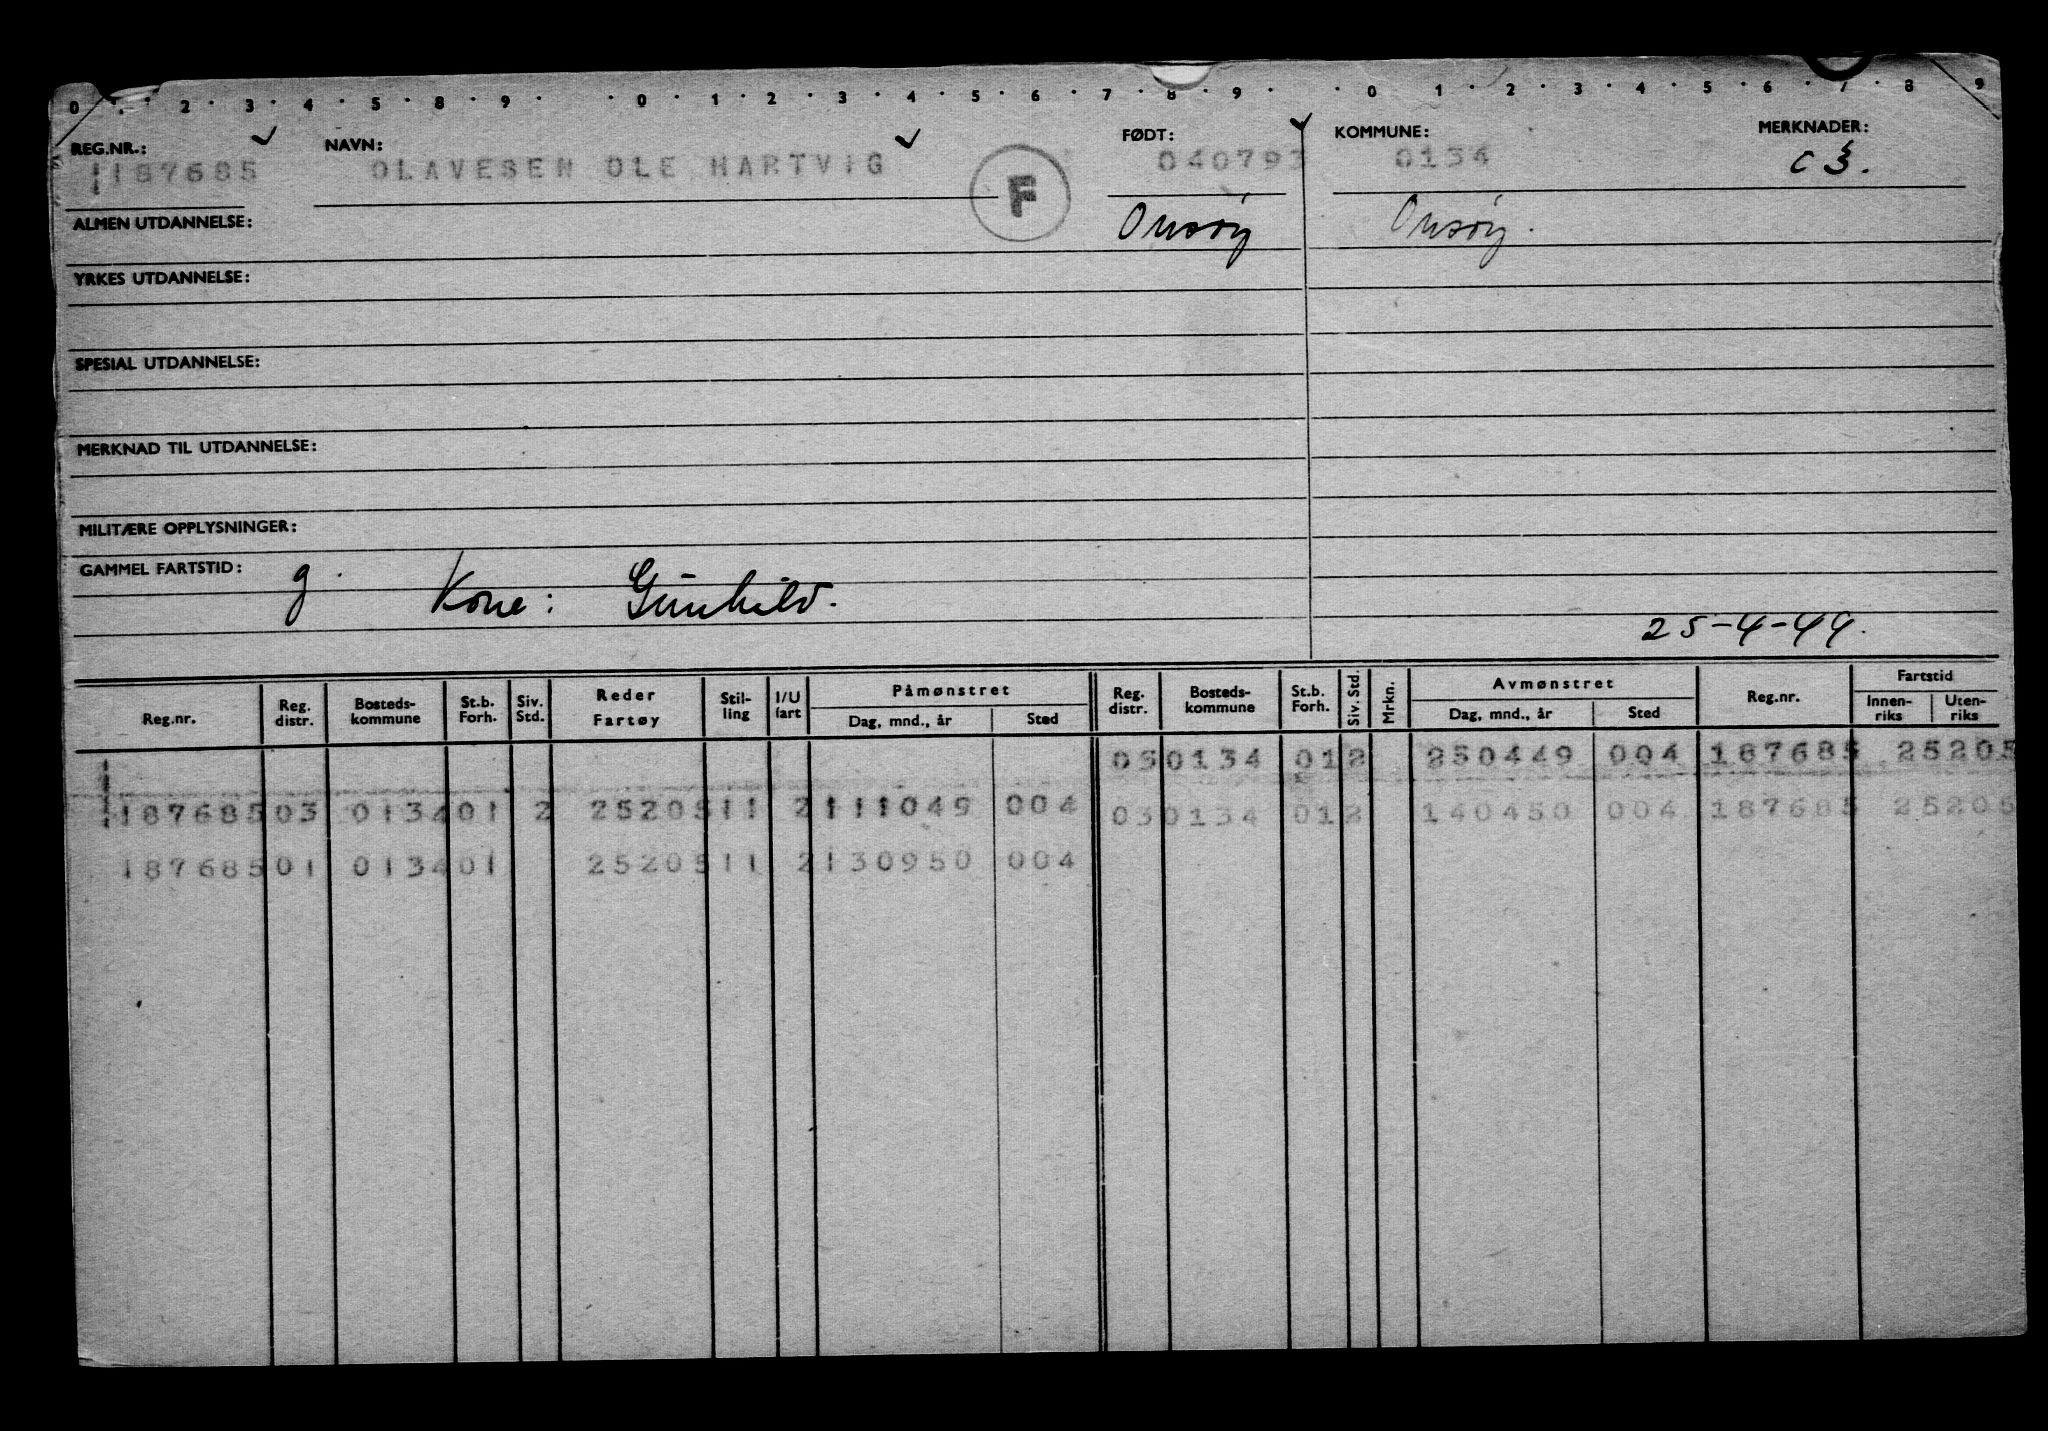 0 . . 2 . 3 . 4 . 5 . 8 . 9 . . 0 . 1 . 2 . 3 . 4 . 5 . 6 . 7 . 8 . 9 . . 0 . 1 . 2 . 3 . 4 . 5 . 6 . 7 . 8 . 9
REG.NR.: NAVN: FØDT: KOMMUNE: MERKNADER:
187685 OLAVESEN OLE HARTVIG F 040793 0134 C 3.
ALMEN UTDANNELSE: Onsøy Onsøy.
YRKES UTDANNELSE:
SPESIAL UTDANNELSE:
MERKNAD TIL UTDANNELSE:
MILITÆRE OPPLYSNINGER:
GAMMEL FARTSTID: g. Kone: Gunhild.
25-4-49.
Reg.nr. Reg. distr. Bosteds-kommune St.b. Forh. Siv. Std. Reder Fartøy Stil-ling I/U fart Påmønstret Dag, mnd., år Sted Reg. distr. Bosteds-kommune St.b. Forh. Siv. Std. Mrkn. Avmønstret Dag, mnd., år Sted Reg.nr. Fartstid Innen-riks Uten-riks
030134 012 250449 004 187685 25205
187685 03 0134 01 2 25205 11 2 111049 004 030134 012 140450 004 187685 25205
187685 01 0134 01 25205 11 2 130950 004